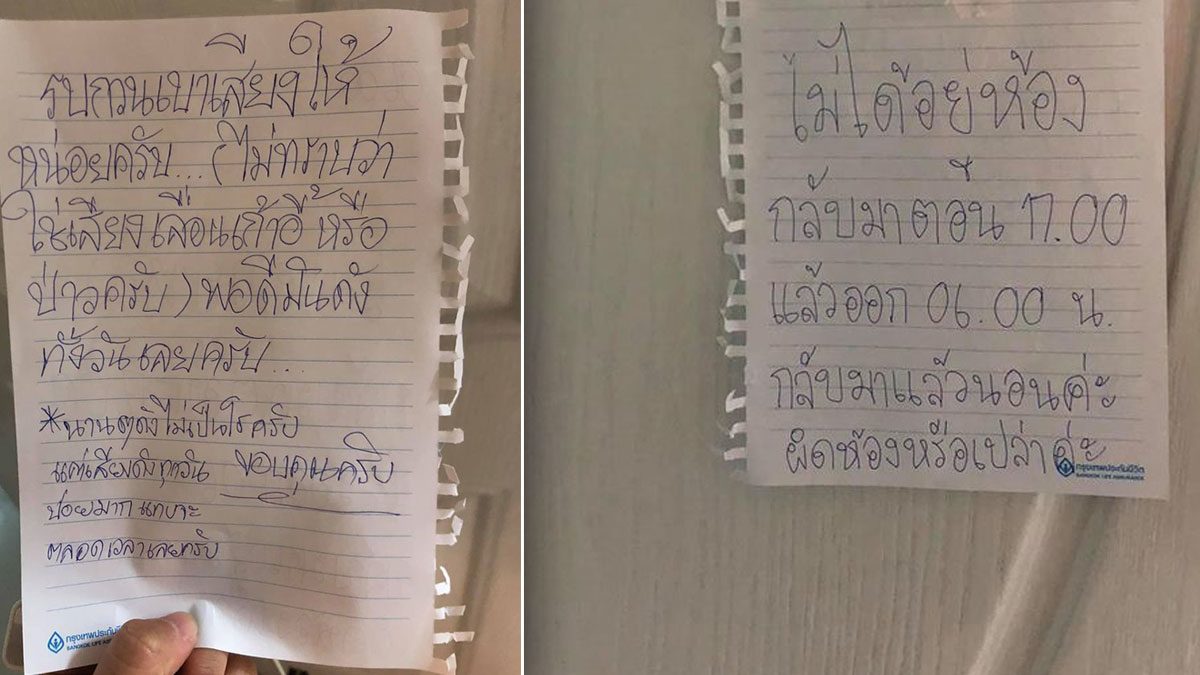 รบกวนเบาเสียงให้
หน่อยครับ...(ไม่ทราบว่า
ใช่เสียงเลื่อนเก้าอี้ หรือ
ป่าวครับ) พอดีมันดัง
ทั้งวันเลยครับ...
*นานๆดังไม่เป็นไรครับ
แต่เสียงดังทุกวัน ขอบคุณครับ
บ่อยมาก แทบจะ
ตลอดเวลาเลยครับ
กรุงเทพประกันชีวิต
BANGKOK LIFE
ไม่ได้อยู่ห้อง
กลับมาตอน 17.00
แล้วออก 06.00 น.
กลับมาแล้วนอนค่ะ
ผิดห้องหรือเปล่าค่ะ
กรุงเทพประกันชีวิต
BANGKOK LIFE ASSURANCE